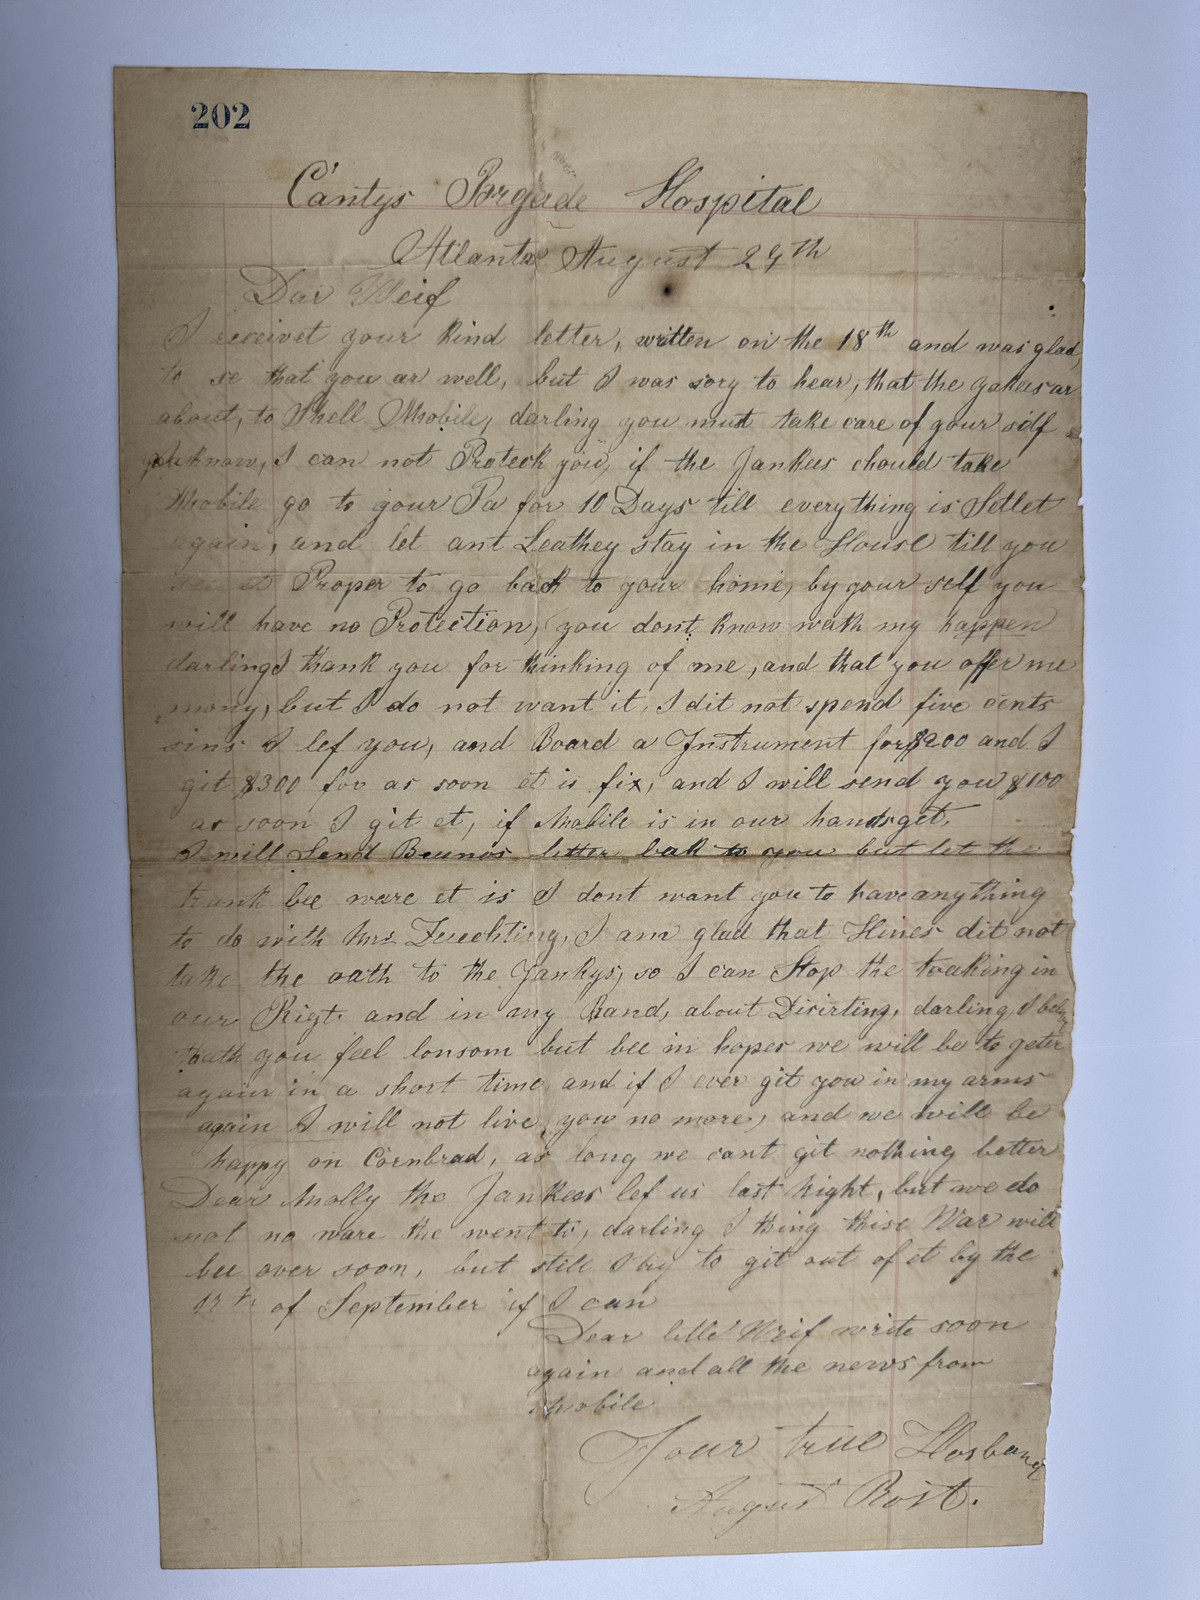 202
Cantys Brgade Hospital
Atlanta August 27th
Dar Weif
I receivet your kind letter, written on the 18th and was glad,
to se that you ar well, but I was sory to hear, that the yakees ar
about, to Shell Mobile, darling you must take care of your silf
you know, I can not Proteck you, if the Jankees chould take
Mobile go to your Pa for 10 Days till everything is Setlet
again, and let ant Leathey stay in the House till you
see et Proper to go back to your home, by your self you
will have no Protection, you dont know wath my happen
darling I thank you for thinking of me, and that you offer me
mony, but I do not want it, I dit not spend five cents
sins I lef you, and Board a Instrument for $200 and I
git $300 for as soon et is fix, and I will send you $100
as soon I git et, if Mobile is in our hands get.
I will Send Brunos letter bak to you but let the
trunk bee ware et is I dont want you to have anything
to do with Mrs Zuechting, I am glad that Hines dit not
take the oath to the Jankys, so I can Stop the toaking in
our Rigt. and in my Band, about Disirting, darling I
thath you feel lonsom but bee in hopes we will be to geter
again in a short time and if I ever git you in my arms
again I will not live you no more, and we will be
happy on Cornbrad, as long we cant git nothing better
Dear Molly the Jankees lef us last night, but we do
not no ware the went to, darling I thing thise War will
bee over soon, but still I try to git out of it by the
of September if I can
Dear Weif write soon
again and all the news from
Mobile
Your true Hosband
August Rost.